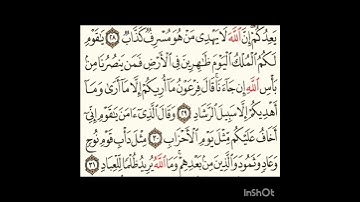 يَعِدُكُمْ ۖ إِنَّ ٱللَّهَ لَا يَهْدِى مَنْ هُوَ مُسْرِفٌ كَذَّابٌ ٢٨ يَٰقَوْمِ
لَكُمُ ٱلْمُلْكُ ٱلْيَوْمَ ظَٰهِرِينَ فِى ٱلْأَرْضِ فَمَن يَنصُرُنَا مِنۢ
بَأْسِ ٱللَّهِ إِن جَآءَنَا ۚ قَالَ فِرْعَوْنُ مَآ أُرِيكُمْ إِلَّا مَآ أَرَىٰ وَمَآ
أَهْدِيكُمْ إِلَّا سَبِيلَ ٱلرَّشَادِ ٢٩ وَقَالَ ٱلَّذِىٓ ءَامَنَ يَٰقَوْمِ إِنِّىٓ
أَخَافُ عَلَيْكُم مِّثْلَ يَوْمِ ٱلْأَحْزَابِ ٣٠ مِثْلَ دَأْبِ قَوْمِ نُوحٍ
وَعَادٍ وَثَمُودَ وَٱلَّذِينَ مِنۢ بَعْدِهِمْ ۚ وَمَا ٱللَّهُ يُرِيدُ ظُلْمًا لِّلْعِبَادِ ٣١
InShOt